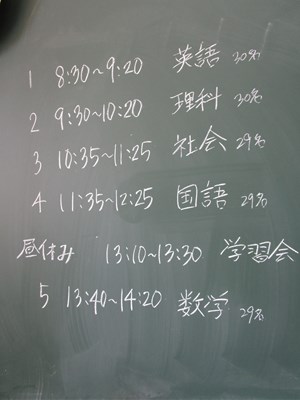 1 8:30～9:20 英語 30名
2 9:30～10:20 理科 30名
3 10:35～11:25 社会 29名
4 11:35～12:25 国語 29名
昼休み 13:10～13:30 学習会
5 13:40～14:20 数学 29名